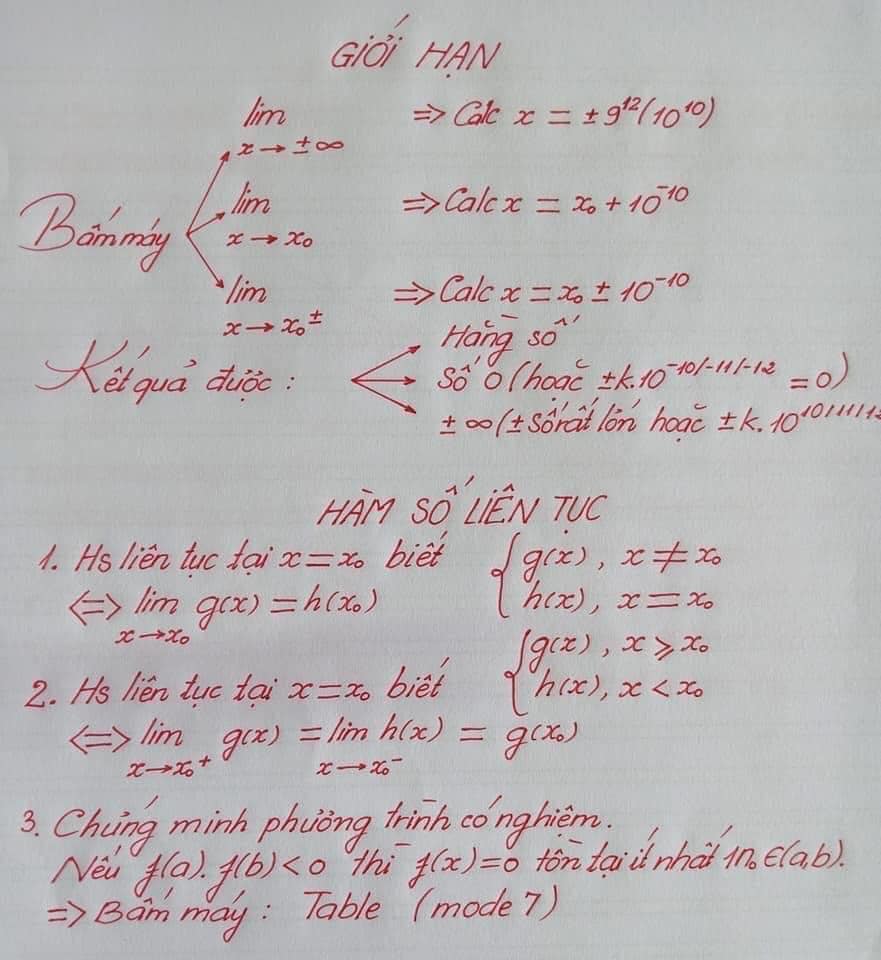 GIỚI HẠN
lim x → ±∞ => Calc x = ± 9^12 (10^10)
Bấm máy lim x → x₀ => Calc x = x₀ + 10^-10
lim x → x₀^± => Calc x = x₀ ± 10^-10
Hằng số
Kết quả được : Số 0 (hoặc ±k.10^-10/-11/-12 = 0)
± ∞ (± số rất lớn hoặc ±k.10^10/11/12
HÀM SỐ LIÊN TỤC
1. Hs liên tục tại x = x₀ biết { g(x), x ≠ x₀
<=> lim x→x₀ g(x) = h(x₀) h(x), x = x₀
{ g(x), x ⩾ x₀
2. Hs liên tục tại x = x₀ biết h(x), x < x₀
<=> lim x→x₀⁺ g(x) = lim x→x₀⁻ h(x) = g(x₀)
3. Chứng minh phương trình có nghiệm.
Nếu f(a).f(b) < 0 thì f(x) = 0 tồn tại ít nhất 1n₀ ∈ (a,b).
=> Bấm máy : Table (mode 7)